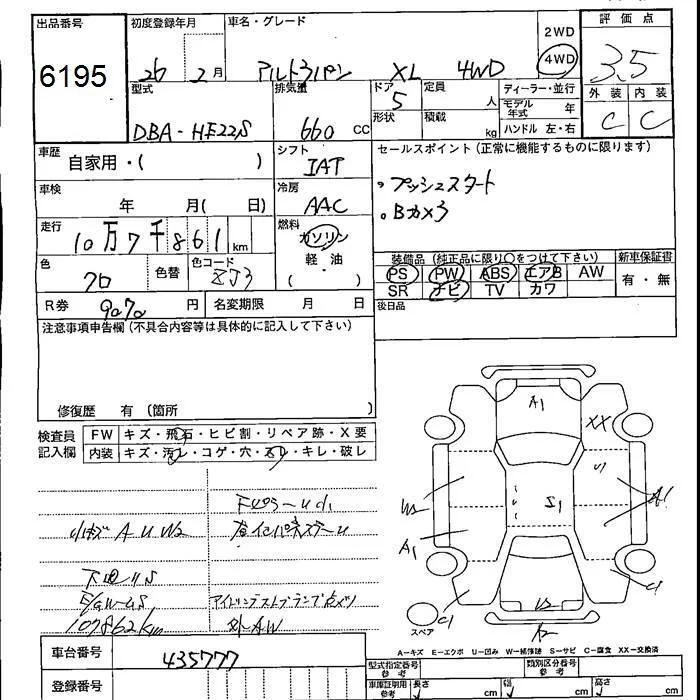 出品番号
6195
初度登録年月
26 2月
車名・グレード
アルトラパン XL 4WD
2WD
4WD
評価点
3.5
外装 内装
C C
型式
DBA-HE22S
排気量
660 CC
ドア
5
形状
定員
人
積載
kg
ディーラー・並行
モデル年式 年
ハンドル 左・右
車歴
自家用・( )
シフト
IAT
セールスポイント(正常に機能するものに限ります)
・プッシュスタート
・Bカメラ
車検
年 月( 日)
冷房
AAC
走行
10万7千861km
燃料
ガソリン
軽・油
( )
色
クロ
色替
色コード
ZJ3
装備品(純正品に限り〇をつけて下さい)
PS PW ABS エアB AW
SR ナビ TV カワ
新車保証書
有・無
R券
9070 円
名変期限 月 日
後日品
注意事項申告欄(不具合内容等は具体的に記入して下さい)
修復歴 有(箇所
検査員記入欄
FW キズ・飛石・ヒビ割・リペア跡・X要
内装 キズ・汚レ・コゲ・穴・スレ・キレ・破レ
小キズ A U W2
下廻りS
107862km
アイドリングストップランプ点メツ
外AW
A1
XX
U1
W2
S1
A1
A1
C1
C1
A2
スペア
A-キズ E-エクボ U-凹み W-補修跡 S-サビ C-腐食 XX-交換済
車台番号
435777
登録番号
型式指定番号
参考
類別区分番号
参考
車庫証明用
参考
長さ
cm
幅
cm
高さ
cm